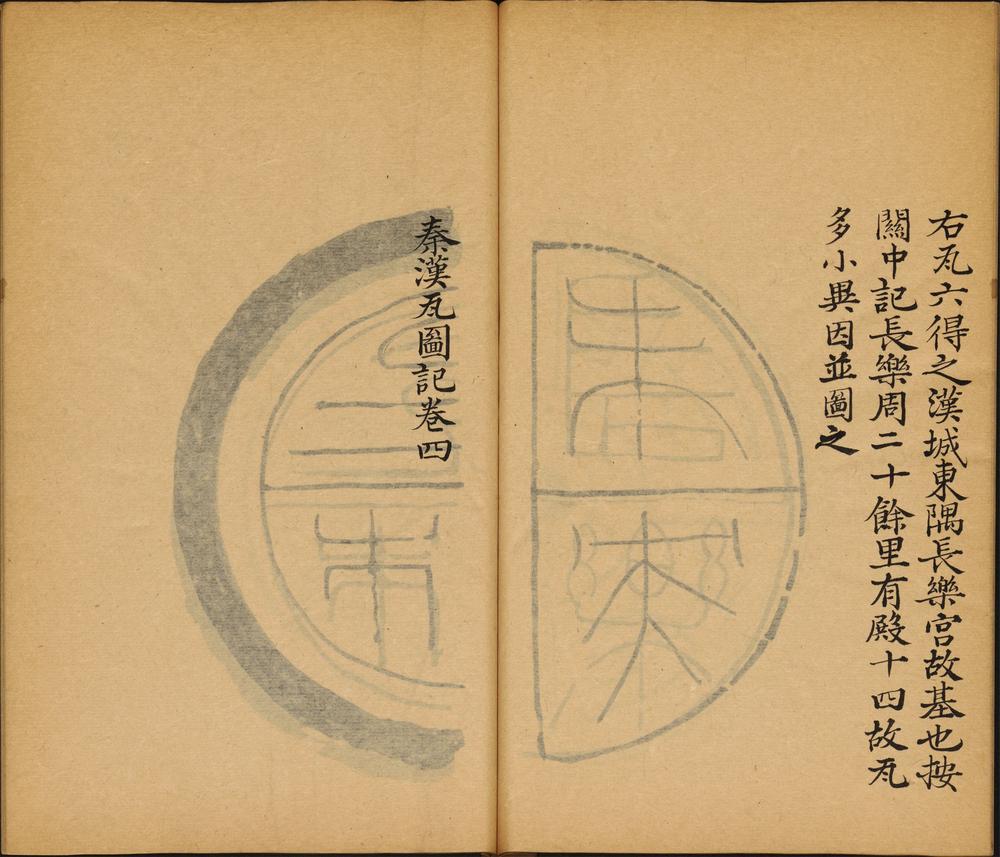 右瓦六得之漢城東隅長樂宮故基也按
關中記長樂周二十餘里有殿十四故瓦
多小異因並圖之
秦漢瓦圖記卷四